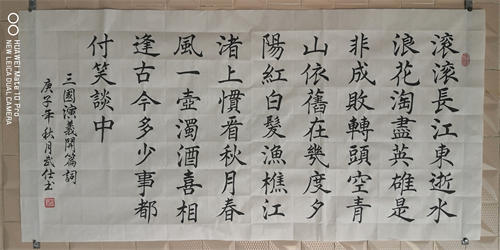 滾滾長江東逝水
浪花淘盡英雄是
非成敗轉頭空青
山依舊在幾度夕
陽紅白髮漁樵江
渚上慣看秋月春
風一壺濁酒喜相
逢古今多少事都
付笑談中
三國演義開篇詞
庚子年秋月武仕書
HUAWEI Mate 10 Pro
NEW LEICA DUAL CAMERA